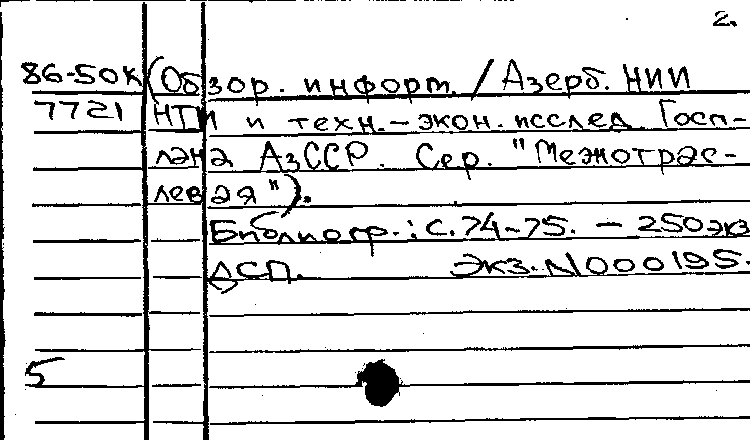 2.
86-50к (Обзор. информ. / Азерб. НИИ
7721 НТИ и техн.-экон. исслед. Госп-
лана АзССР. Сер. "Межотрас-
левая").
Библиогр.: с.74-75. - 250экз
ДСП. Экз.N000195.
5